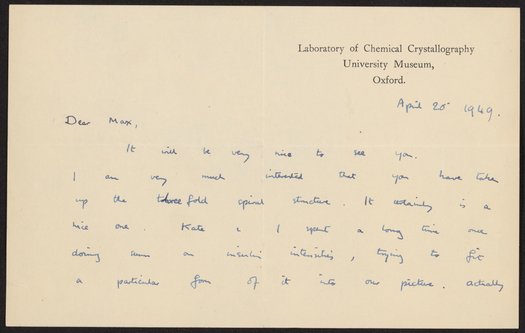 Laboratory of Chemical Crystallography
University Museum,
Oxford.
April 20 1949.
Dear Max,
It will be very nice to see you.
I am very much interested that you have taken
up the threefold spiral structure. It certainly is a
nice one. Kate & I spent a long time once
doing sums on insulin intensities, trying to fit
a particular form of it into our picture. Actually